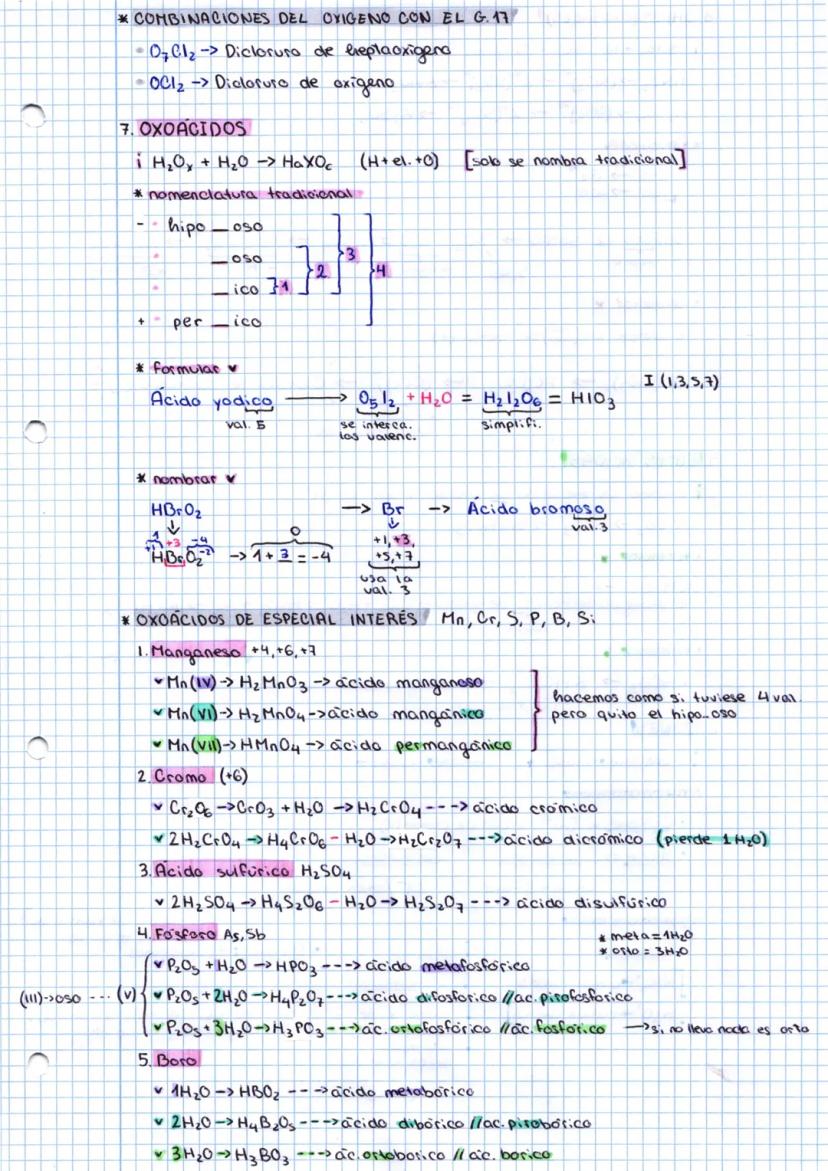 * COMBINACIONES DEL OXIGENO CON EL G.17
O₇Cl₂ -> Dicloruro de heptaoxigeno
OCl₂ -> Dicloruro de oxigeno
7. OXOÁCIDOS
¡ H₂Oₓ + H₂O -> HₐXO꜀ (H + el. + O) [solo se nombra tradicional]
* nomenclatura tradicional
- hipo _ oso
_ oso
_ ico }1 }2 }3 }4
+ per _ ico
* formular
Ácido yodico -> O₅I₂ + H₂O = H₂I₂O₆ = HIO₃ I (1,3,5,7)
val. 5 se interca. las valenc. simplifi.
* nombrar
HBrO₂ -> Br -> Ácido bromoso
val. 3
1 +3 -4
+1 -2
HBrO₂ -> 1 + 3 = -4
0
+1, +3,
+5, +7
usa la
val. 3
* OXOÁCIDOS DE ESPECIAL INTERÉS Mn, Cr, S, P, B, Si
1. Manganeso +4, +6, +7
Mn(IV) -> H₂MnO₃ -> ácido manganoso
Mn(VI) -> H₂MnO₄ -> ácido mangánico
Mn(VII) -> HMnO₄ -> ácido permangánico
hacemos como si tuviese 4 val.
pero quito el hipo_oso
2. Cromo (+6)
Cr₂O₆ -> CrO₃ + H₂O -> H₂CrO₄ ---> ácido crómico
2H₂CrO₄ -> H₄CrO₆ - H₂O -> H₂Cr₂O₇ ---> ácido dicrómico (pierde 1 H₂O)
3. Ácido sulfúrico H₂SO₄
2H₂SO₄ -> H₄S₂O₆ - H₂O -> H₂S₂O₇ ---> ácido disulfúrico
4. Fósforo As, Sb
* meta = 1H₂O
* orto = 3H₂O
P₂O₅ + H₂O -> HPO₃ ---> ácido metafosfórico
(III)->oso --- (V) P₂O₅ + 2H₂O -> H₄P₂O₇ ---> ácido difosforico // ac. pirofosforico
P₂O₅ + 3H₂O -> H₃PO₃ ---> ác. ortofosfórico // ác. fosfórico -> si no lleva nada es orto
5. Boro
1H₂O -> HBO₂ ---> ácido metabórico
2H₂O -> H₄B₂O₅ ---> ácido dibórico // ac. pirobórico
3H₂O -> H₃BO₃ ---> ác. ortoborico // ác. borico